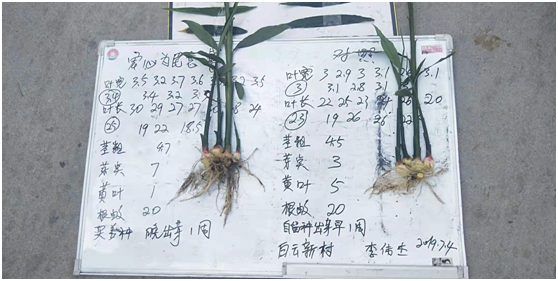 爱心为民
叶宽 3.5 3.2 3.7 3.6 3.2 3.5
3.4 3.2 3
叶长 30 29 27 27 28 24
25 19 22 18.5
茎粗 47
芽实 7
黄叶 1
根数 20
晚出芽1周
对照
叶宽 3 2.9 3 3.1 3.1
3 3.1 2.8 3.1
叶长 22 25 23 20
23 19 26 22
茎粗 45
芽实 3
黄叶 5
根数 20
自留种出芽早1周
白云新村 李伟生 2019.7.4